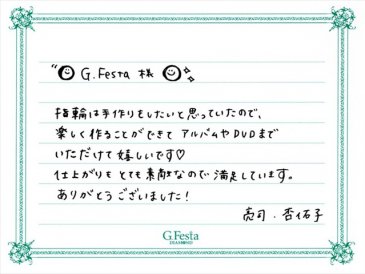 G.Festa 様
指輪は手作りをしたいと思っていたので、
楽しく作ることができて アルバムやDVDまで
いただけて嬉しいです♡
仕上がりも とても素敵なので 満足しています。
ありがとうございました！
亮司・杏佑子
G.Festa
DIAMOND